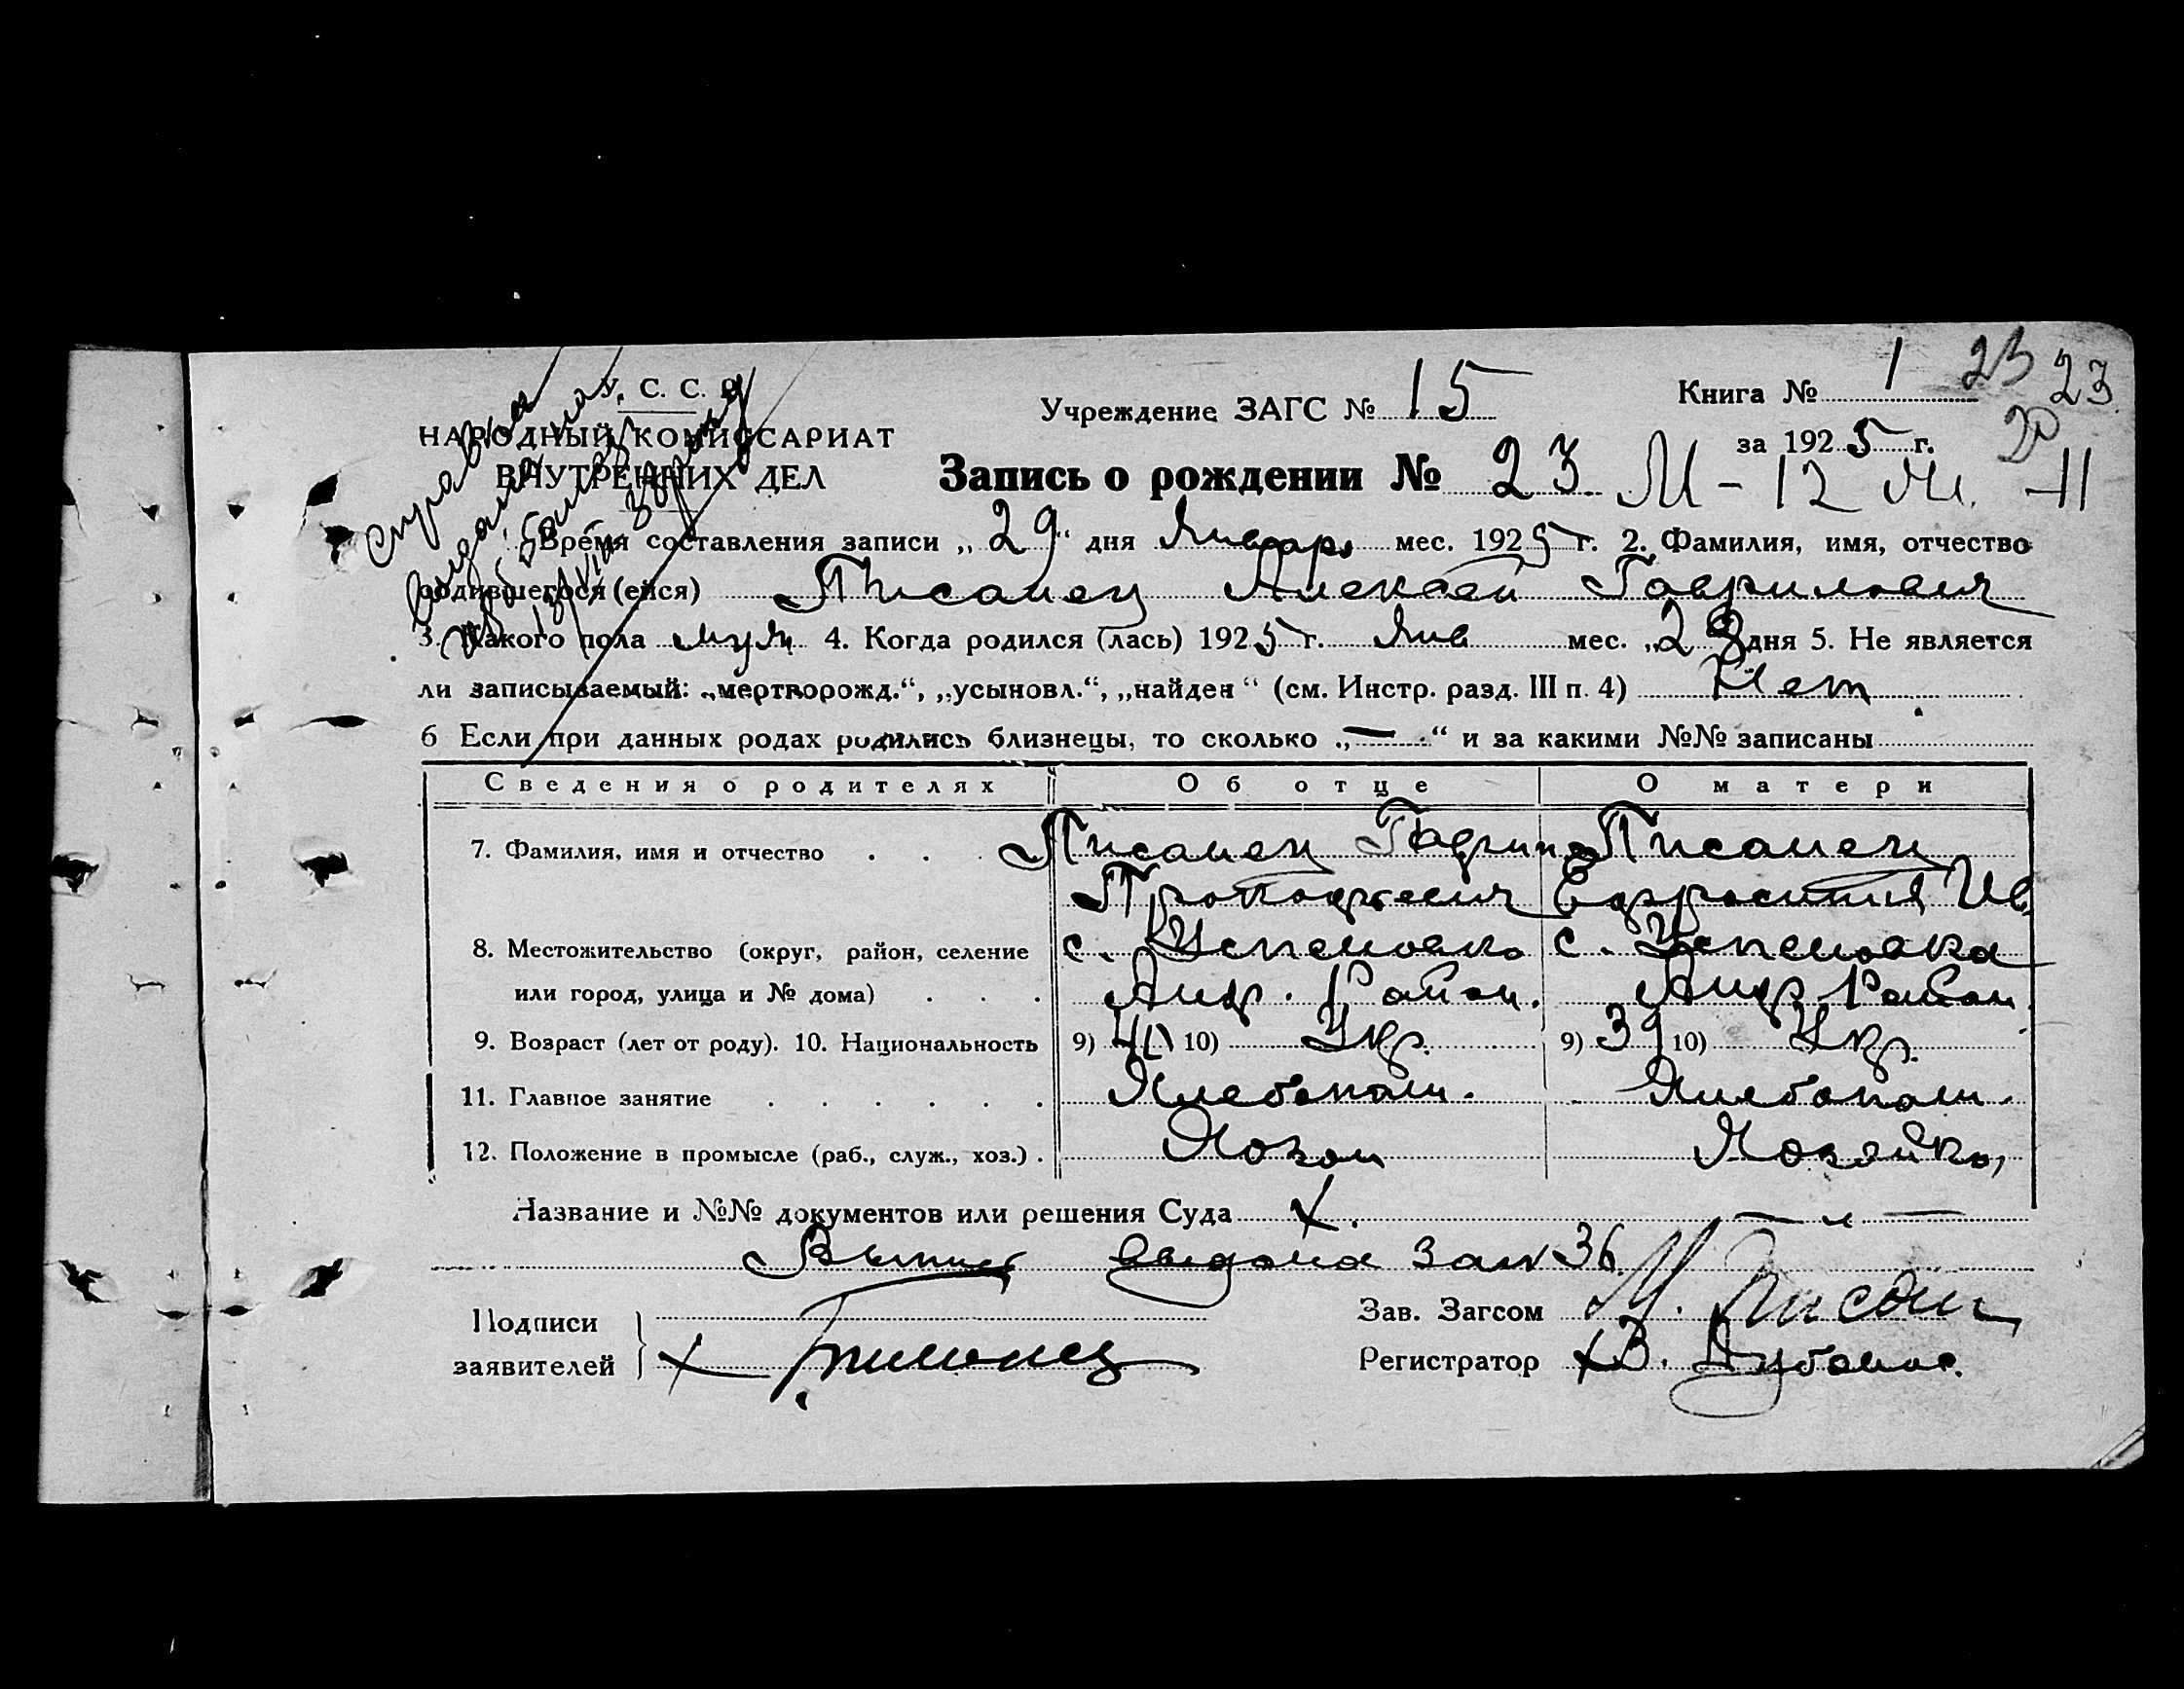 У. С. С. Р.
НАРОДНЫЙ КОМИССАРИАТ
ВНУТРЕННИХ ДЕЛ
Справка
выдана
Учреждение ЗАГС № 15
Книга № 1 23 23
за 1925 г. 20
Запись о рождении № 23 М - 12 м. 11
Время составления записи „29“ дня Январь мес. 1925 г. 2. Фамилия, имя, отчество
родившегося (ейся) Писанец Алексей Гаврилович
3. Какого пола муж 4. Когда родился (лась) 1925 г. Янв мес. „23 дня 5. Не является
ли записываемый: „мертворожд.“, „усыновл.“, „найден“ (см. Инстр. разд. III п. 4) Нет
6 Если при данных родах родились близнецы, то сколько „—“ и за какими №№ записаны
Сведения о родителях Об отце О матери
7. Фамилия, имя и отчество . . . Писанец Гаврил Писанец
Прокофьевич Ефросиния Ив
8. Местожительство (округ, район, селение с. Успеновка с. Успеновка
или город, улица и № дома) . . . Андр. Район. Андр. Район
9. Возраст (лет от роду). 10. Национальность 9) 40 10) Укр. 9) 39 10) Укр.
11. Главное занятие . . . . . . Хлебопаш. Хлебопаш.
12. Положение в промысле (раб., служ., хоз.) . Хозян Хозяйка
Название и №№ документов или решения Суда X. — „ —
Выпись выдана за № 36
Подписи
заявителей X
Зав. Загсом М. Писан
Регистратор X В.